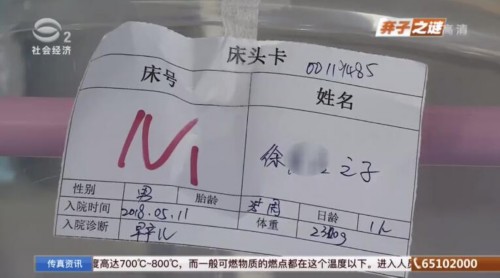 2
社会经济
弃子之谜高清
床头卡
00117485
床号
姓名
徐 之子
性别 男 胎龄 日龄 1h
入院时间 2018.05.11 体重
入院诊断 早产儿
传真资讯 度高达700℃~800℃，而一般可燃物质的燃点都在这个温度以下。进入人员 65102000